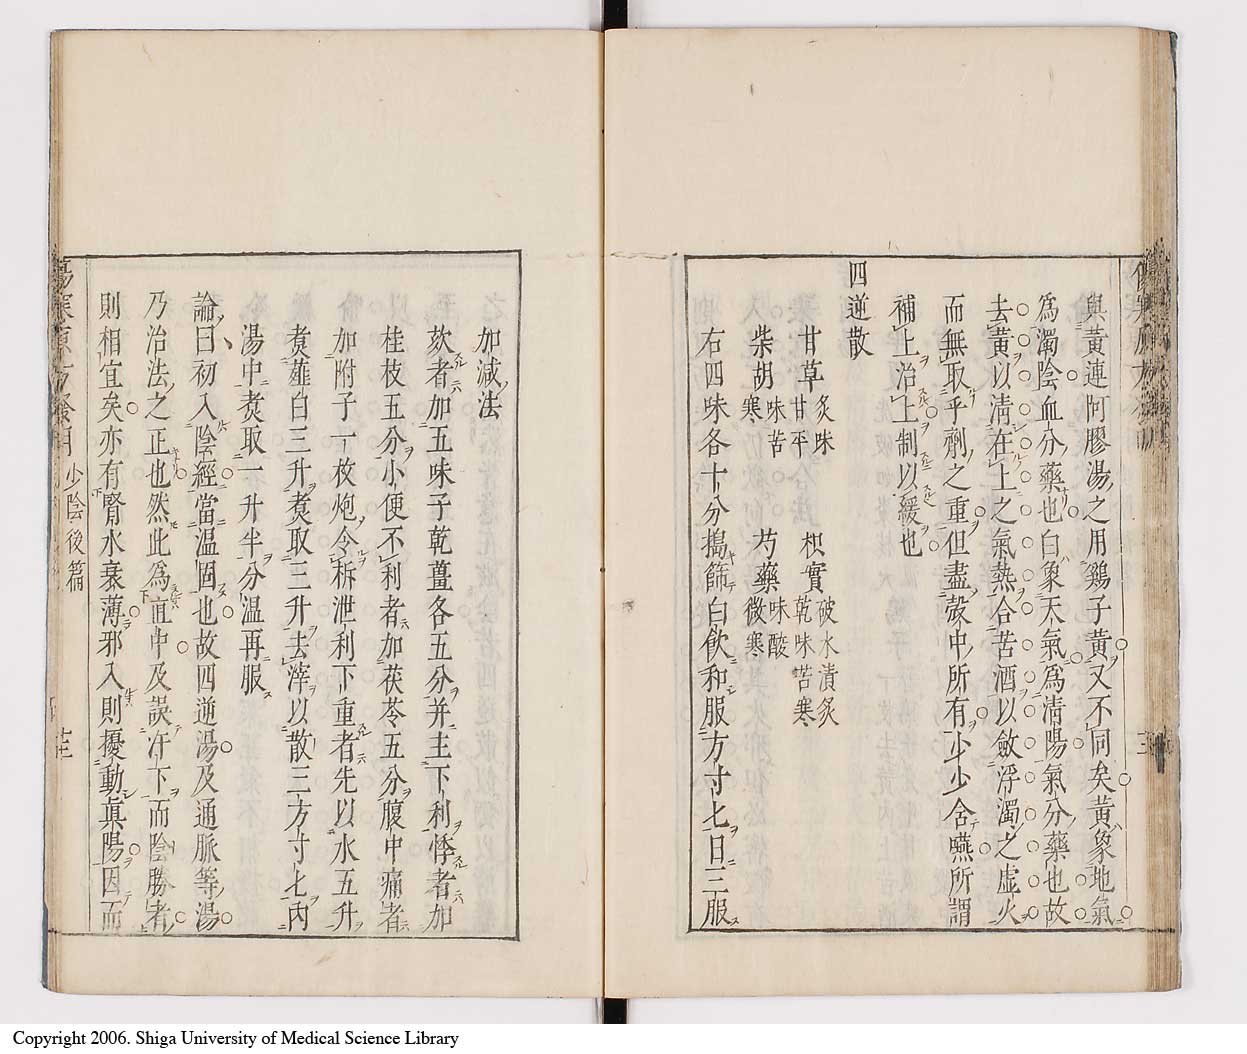 與黃連阿膠湯之用鷄子黃又不同矣黃象地氣
爲濁陰血分藥也白象天氣爲清陽氣分藥也故
去黃以清在上之氣熱合苦酒以斂浮濁之虛火
而無取乎劑之重但盡殼中所有少少含嚥所謂
補上治上制以緩也
四逆散
甘草炙味甘平 枳實破水漬炙乾味苦寒
柴胡味苦寒 芍藥味酸微寒
右四味各十分搗篩白飲和服方寸七日三服
加減法
欬者加五味子乾薑各五分并主下利悸者加
桂枝五分小便不利者加茯苓五分腹中痛者
加附子一枚炮令柝泄利下重者先以水五升
煑薤白三升煑取三升去滓以散三方寸七内
湯中煑取一升半分温再服
論曰初入陰經當温固也故四逆湯及通脈等湯
乃治法之正也然此爲直中及誤汗下而陰勝者
則相宜矣亦有腎水衰薄邪入則擾動眞陽因而
少陰後篇
Copyright 2006. Shiga University of Medical Science Library